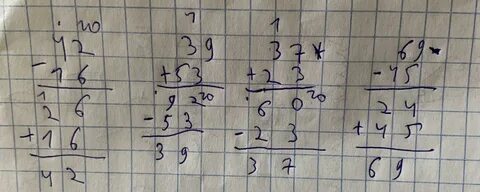 · 10 1 1
42 39 37* 69·
- 16 +53 +23 - 45
1 26 · 92 10 · 60 10 24
+ 16 - 53 - 23 + 45
42 39 37 69